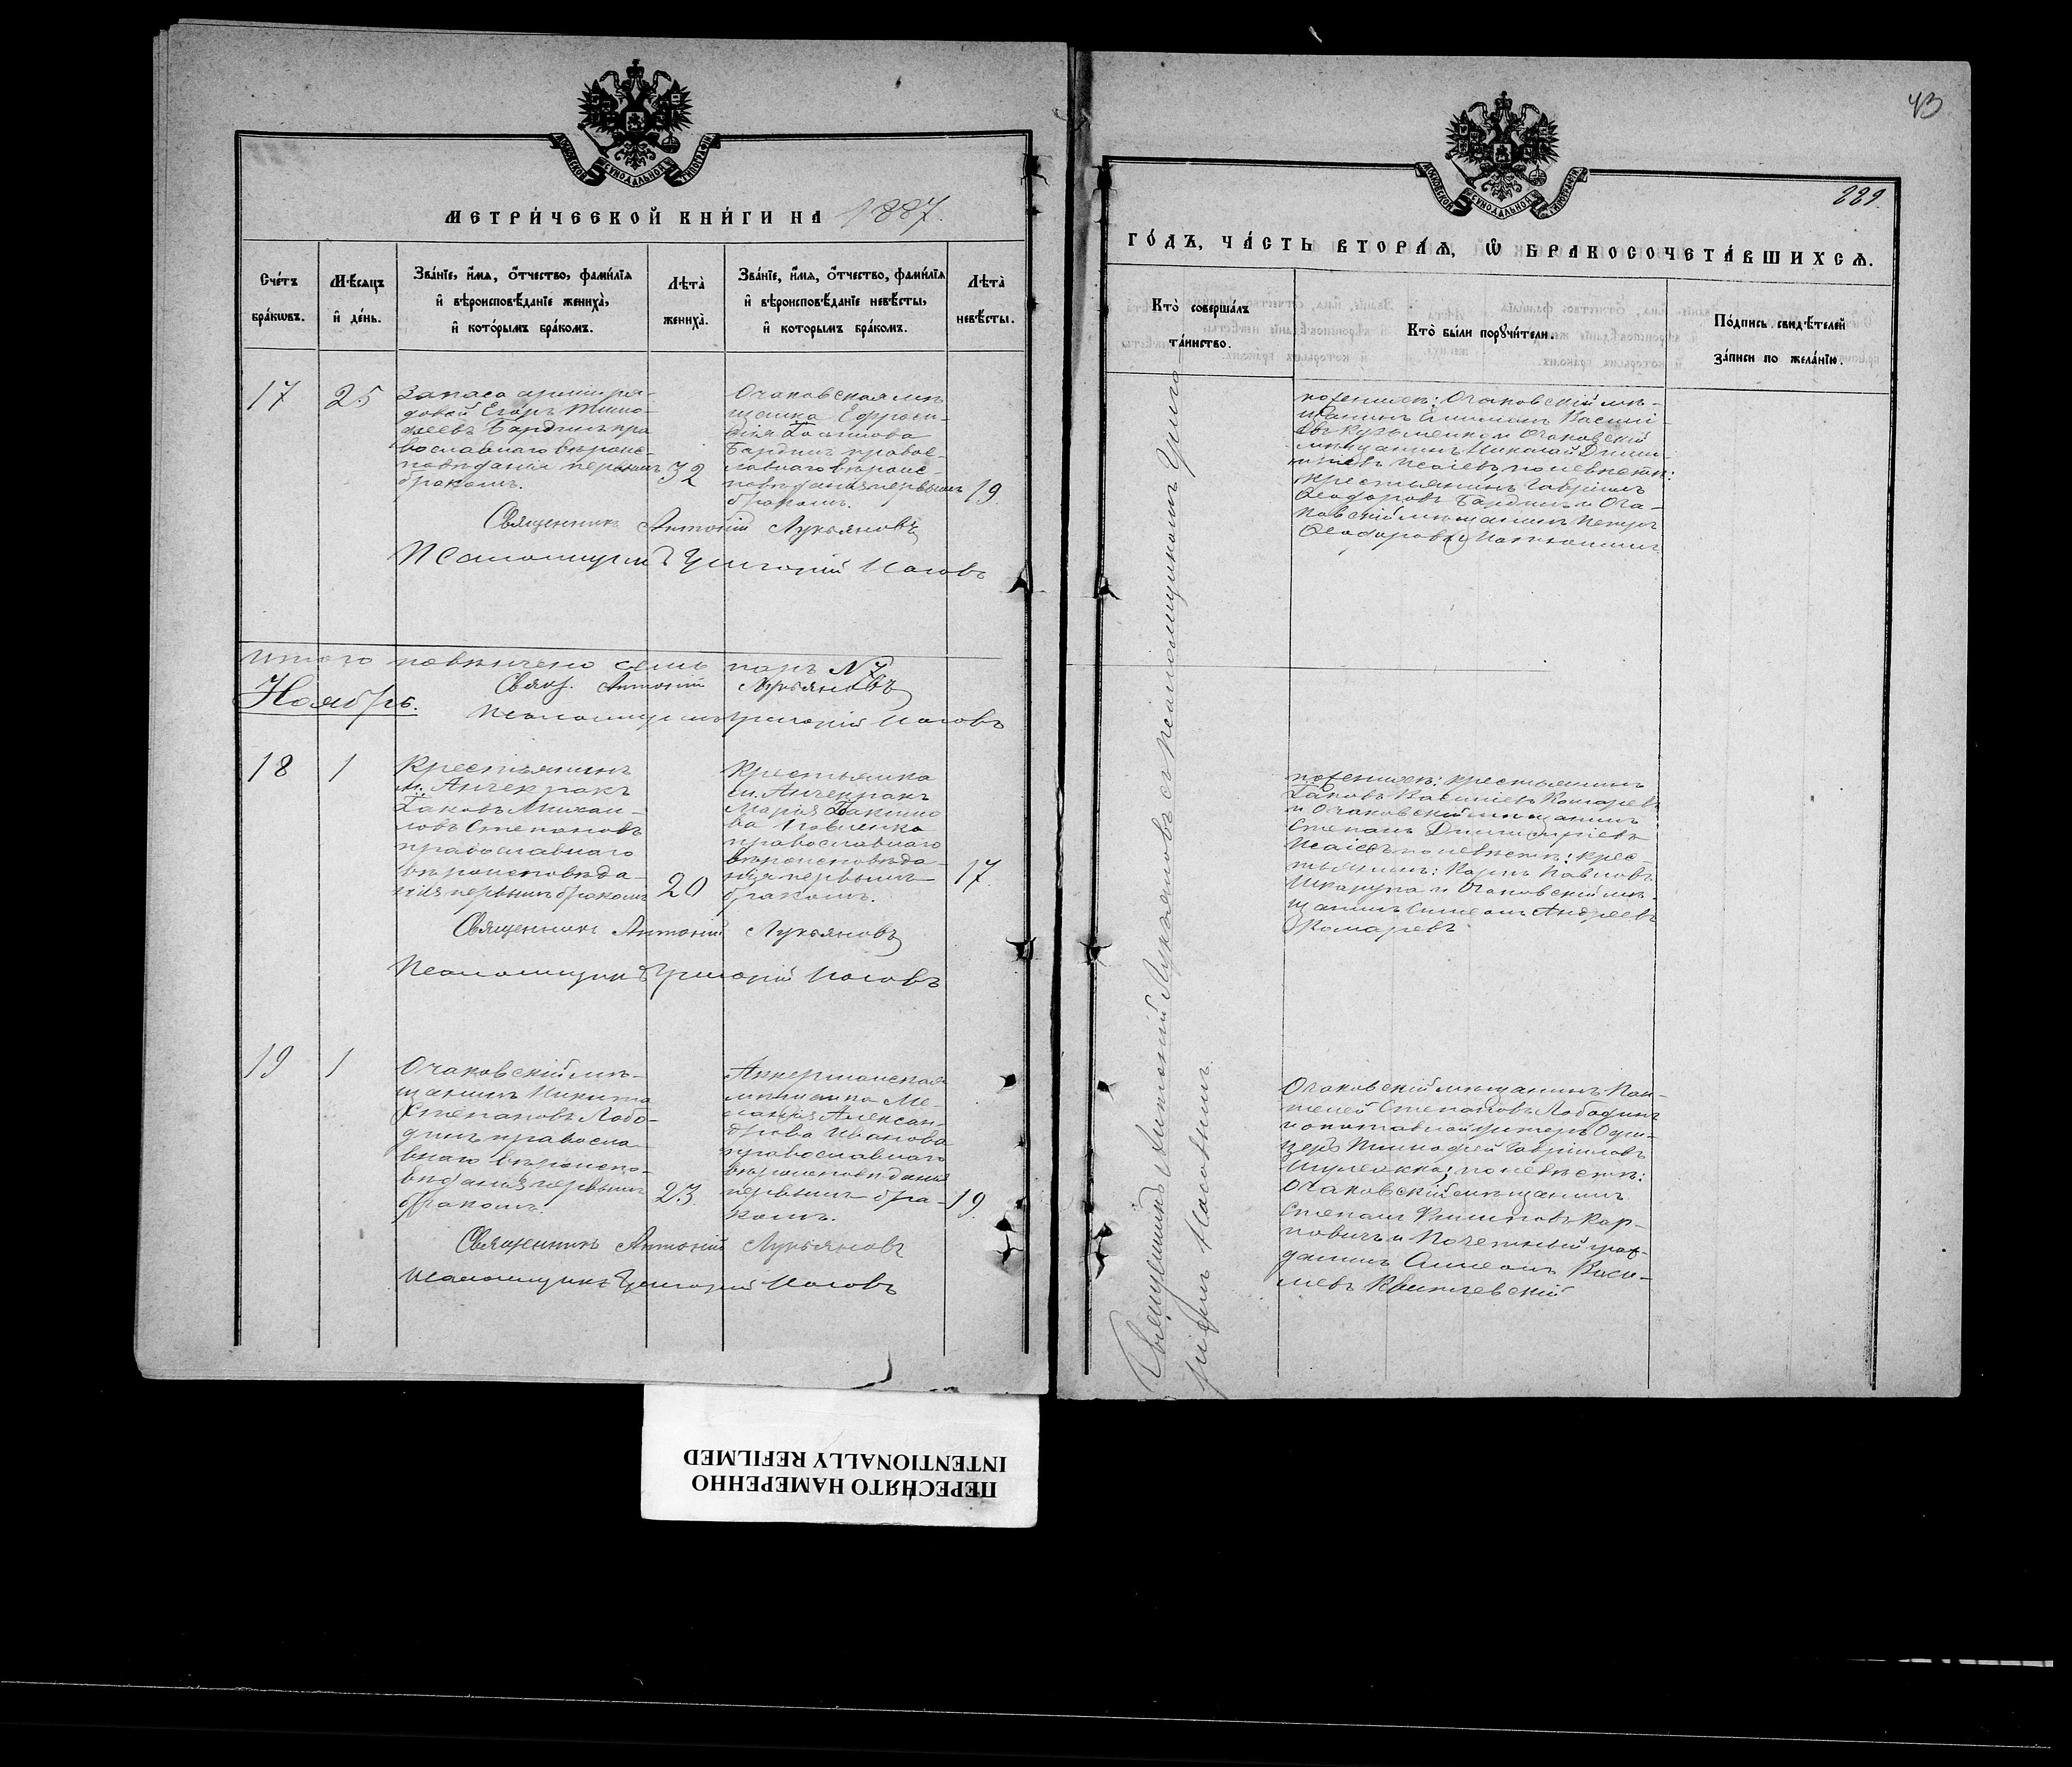 МОСКОВСКОЙ СѴНОДАЛЬНОЙ ТИПОГРАФІИ
МЕТРИ́ЧЕСКОЙ КНИ́ГИ НА 1887.
Сче́тъ бра́ковъ.
Мѣ́сяцъ и де́нь.
Зва́ніе, и́мя, о́тчество, фами́лія и вѣроисповѣ́даніе жениха̀, и кото́рымъ бра́комъ.
Лѣта̀ жениха̀.
Зва́ніе, и́мя, о́тчество, фами́лія и вѣроисповѣ́даніе невѣ́сты, и которымъ бра́комъ.
Лѣта̀ невѣ́сты.
17
25
Запаса арміи ря-
довой Егоръ Тимо-
феевъ Бардинъ пра
вославнаго вѣроис-
повѣданія первымъ
бракомъ.
32
Очаковская мѣ
щанка Ефроси-
нія
Бардинъ правос-
лавнаго вѣроис-
повѣданія первымъ
бракомъ.
19
Священникъ Антоній Лукьяновъ
Псаломщикъ Григорій Носовъ
Итого повѣнчено семь паръ № 7
Свящ. Антоній Лукьяновъ
Ноябрь.
Псаломщикъ Григорій Носовъ
18
1
Крестьянинъ
м. Анчекракъ
Іаковъ Михаи-
ловъ Степановъ
православнаго
вѣроисповѣда-
нія первымъ бракомъ
20
Крестьянка
м. Анчекракъ
Марія Іакимо
ва Павленко
православнаго
вѣроисповѣда-
нія первымъ
бракомъ.
17
Священникъ Антоній Лукьяновъ
Псаломщикъ Григорій Носовъ
19
1
Очаковскій мѣ-
щанинъ Никита
Степановъ Лобо-
динъ правосла
внаго вѣроиспо-
вѣданія первымъ
бракомъ.
23
Аккерманская
мѣщанка Ме-
ланія Алексан-
дрова Иванова
православнаго
вѣроисповѣданія
первымъ бра-
комъ.
19.
Священникъ Антоній Лукьяновъ
Псаломщикъ Григорій Носовъ
43
МОСКОВСКОЙ СѴНОДАЛЬНОЙ ТИПОГРАФІИ
229.
ГО́ДЪ, ЧА́СТЬ ВТОРА́Я, Ѽ БРАКОСОЧЕТА́ВШИХСЯ.
Кто̀ соверша́лъ та́инство.
Кто̀ бы́ли порꙋчи́тели.
По́дпись свидѣ́телей за́писи по жела́нію.
Священникъ Антоній Лукьяновъ съ псаломщикомъ Григо
ріемъ Носовымъ.
по женихѣ: Очаковскій мѣ-
щанинъ Симеонъ Васильі
евъ Кузьменко и Очаковскій
мѣщанинъ Николай Дими-
тріевъ Исаіевъ по невѣстѣ:
крестьянинъ Гавріилъ
Ѳеодоровъ Бардинъ и Оча-
ковскій мѣщанинъ Петръ
Ѳеодоровъ
по женихѣ: крестьянинъ
Іаковъ Василіевъ Комаревъ
и Очаковскій мѣщанинъ
Степанъ Димитріевъ
Исаіевъ по невѣстѣ: крес-
тьянинъ: Карпъ Павловъ
Шкарупа и Очаковскій мѣ-
щанинъ Симеонъ Андреевъ
Комаревъ
Очаковскій мѣщанинъ Пан-
телей Степановъ Лободинъ
и отставной унтеръ Офи-
церъ Тимофей Гавріиловъ
по невѣстѣ:
Очаковскій мѣщанинъ
Степанъ Филиповъ Кар-
повичъ и Почетный граж-
данинъ Симеонъ Васи-
ліевъ
ПЕРЕСНЯТО НАМЕРЕННО
INTENTIONALLY REFILMED